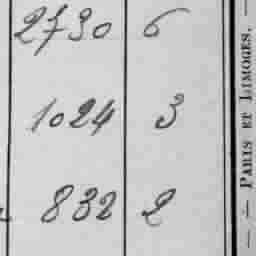 2730 6
1024 3
832 2
— — PARIS ET LIMOGES. —